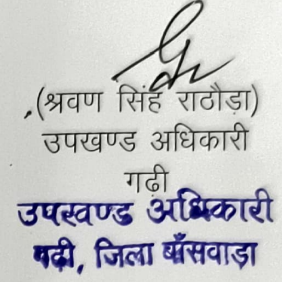 (श्रवण सिंह राठौड़ा)
उपखण्ड अधिकारी
गढ़ी
उपखण्ड अधिकारी
गढ़ी, जिला बाँसवाड़ा